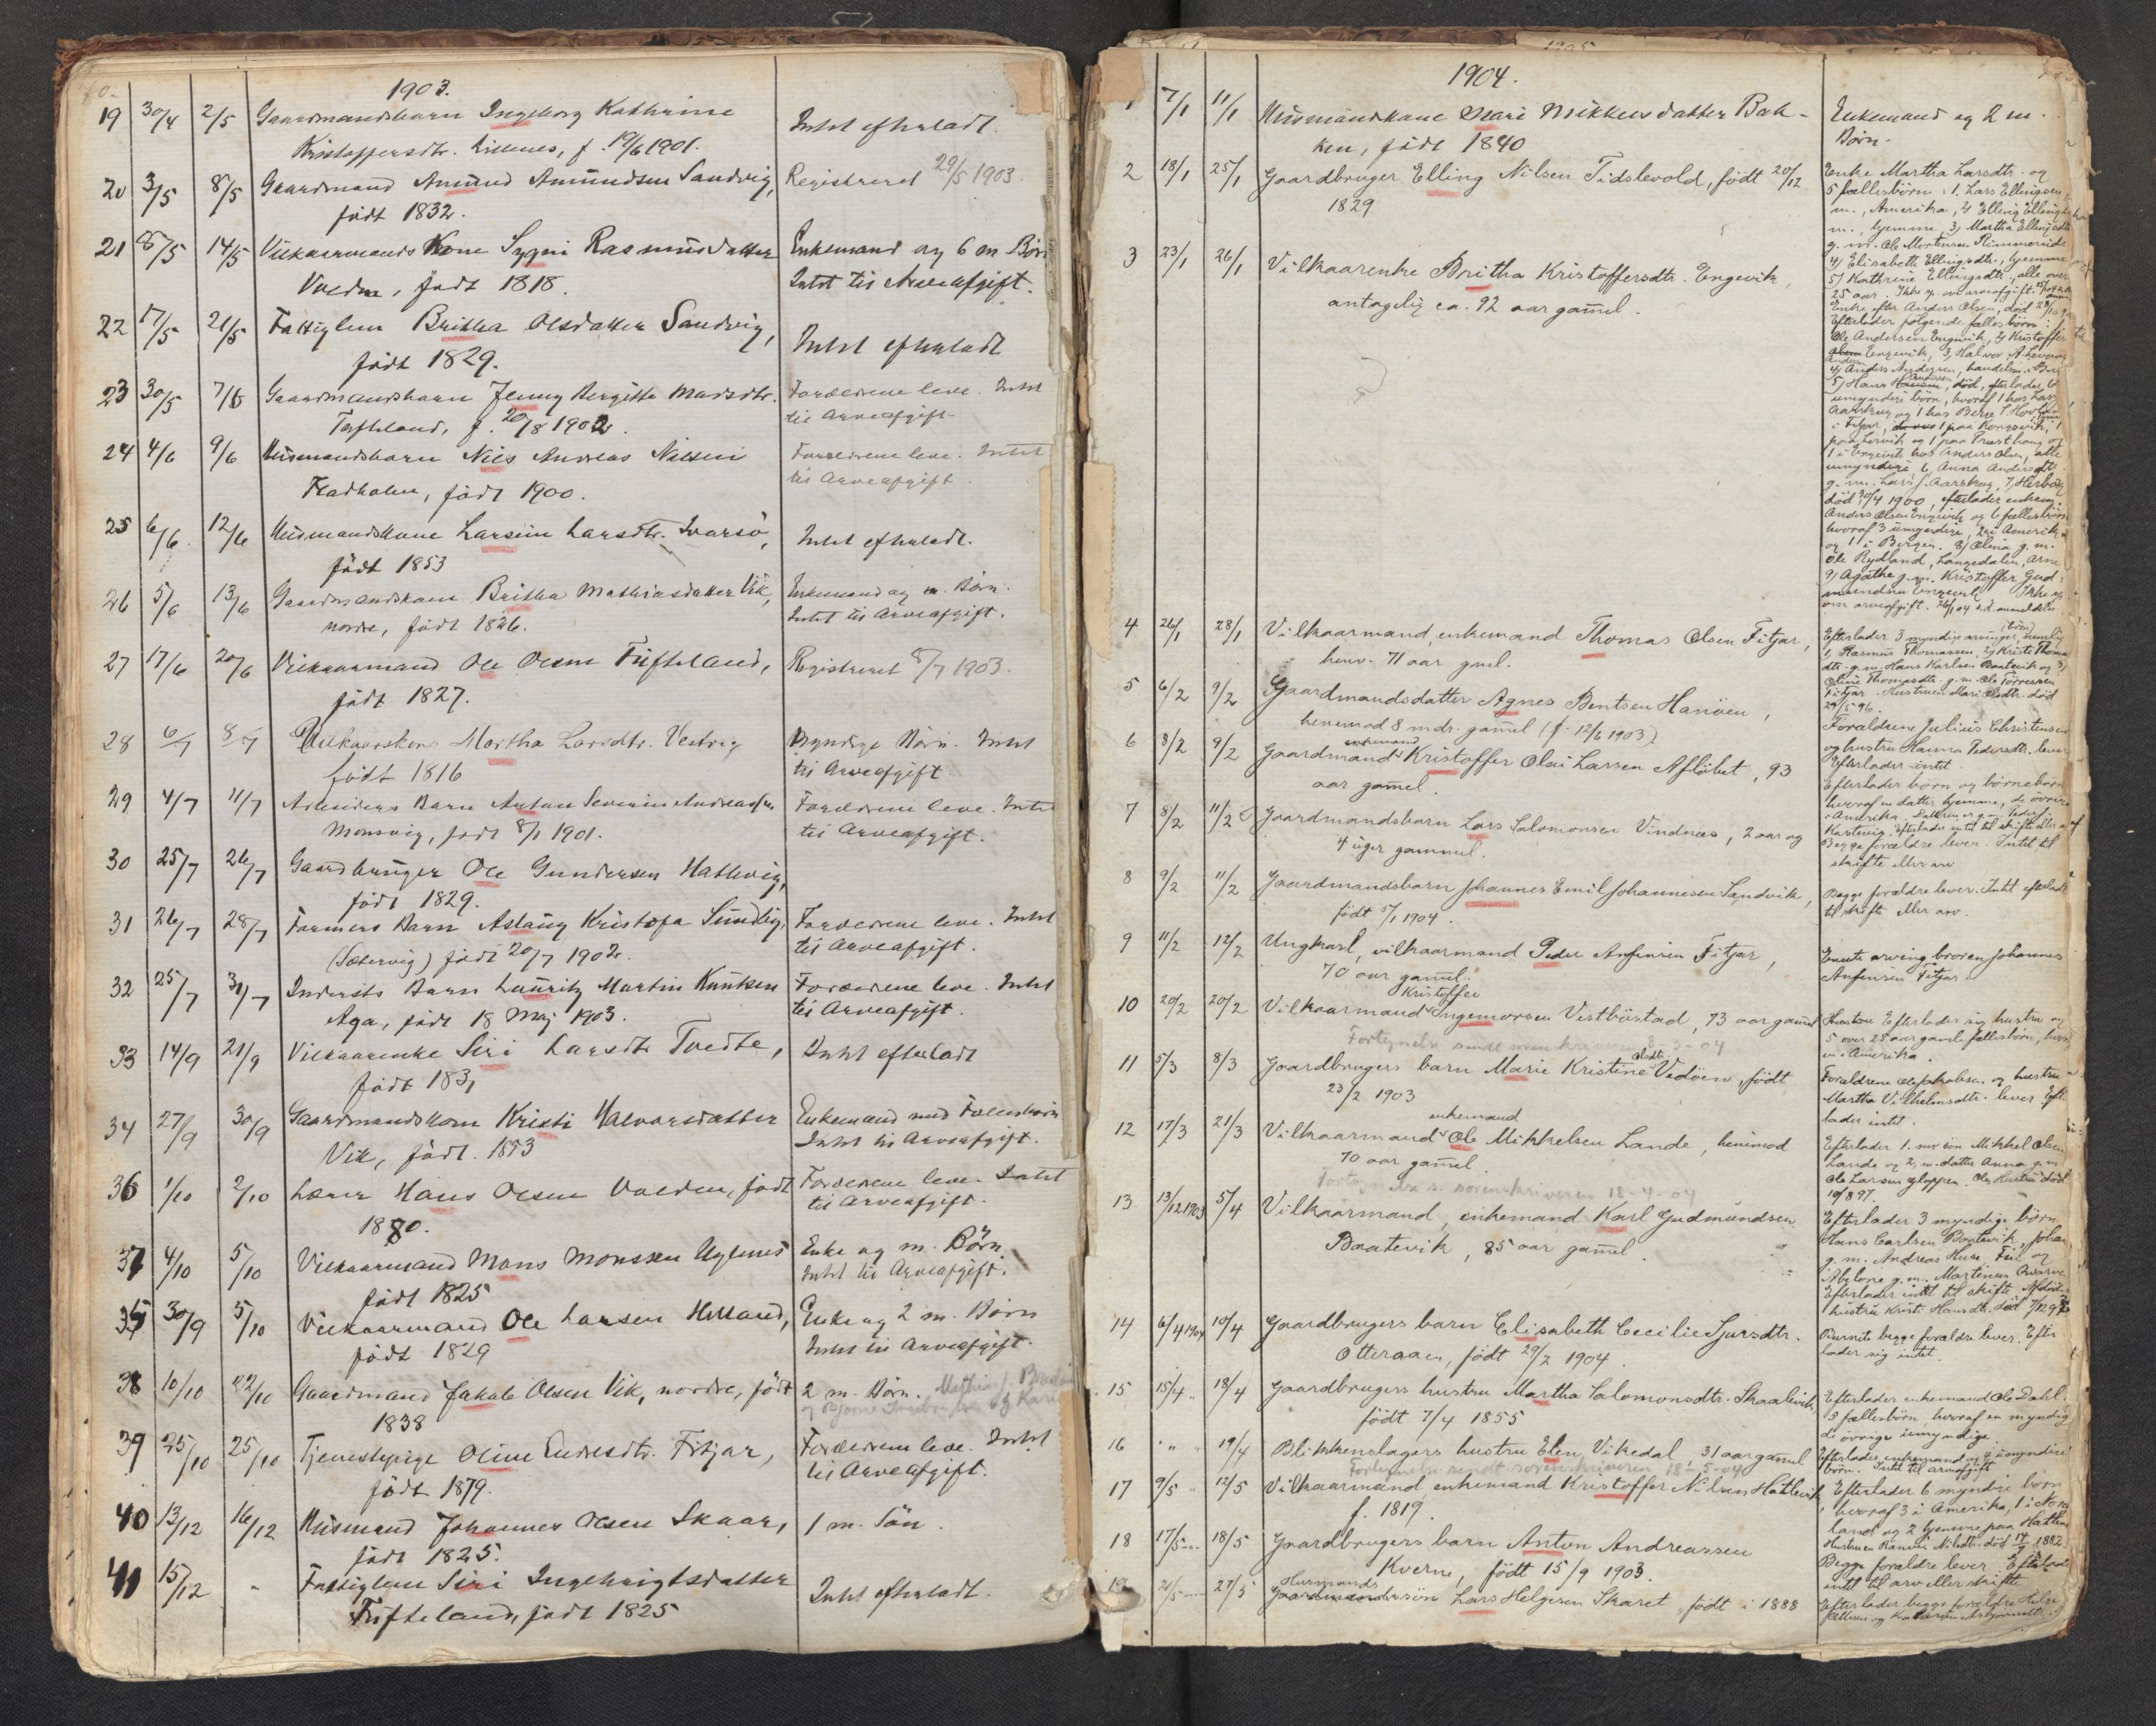 1903.
19 30/4 2/5 Gaardmandsbarn Ingeborg Kathrine
Kristoffersdtr. f. 19/6 1901.
Intet efterladt.
20 3/5 8/5 Gaardmand Amund Amundsen Sandvig,
født 1832.
Registreret 29/5 1903.
21 8/5 14/5 Vilkaarmands Kone Sygni Rasmusdatter
født 1818.
Enkemand og 6 m Børn
Intet til Arveafgift.
22 17/5 21/5 Fattiglem Britha Olsdatter Sandvig,
født 1829.
Intet efterladt
23 30/5 7/6 Gaardmandsbarn Jenny Bergitte Madsdtr.
Tufteland, f. 20/8 1902.
Forældrene leve. Intet
til Arveafgift
24 4/6 9/6 Husmandsbarn Nils Andreas Nilsen
født 1900.
Forældrene leve. Intet
til Arveafgift.
25 6/6 12/6 Husmandskone Larsine Larsdtr. Ivarsø,
født 1853
Intet efterladt.
26 5/6 13/6 Gaardmandskone Britha Mathiasdatter Vik,
nordre, født 1826.
Enkemand og m. Børn.
Intet til Arveafgift.
27 17/6 20/6 Vilkaarmand Ole Olsen Tufteland,
født 1827.
Registreret 8/7 1903.
28 6/7 8/7 Vilkaarskone Martha Larsdtr. Vestvig
født 1816
Myndige Børn. Intet
til Arveafgift
29 4/7 11/7 Arbeiders Barn Anton Severin Andreassen
Monsvig, født 8/1 1901.
Forældrene leve. Intet
til Arveafgift.
30 25/7 26/7 Gaardbruger Ole Gundersen Hatlevig,
født 1829.
31 26/7 28/7 Farmers Barn Aslaug Kristofa
(Sætervig) født 20/7 1902.
Forældrene leve. Intet
til Arveafgift.
32 25/7 31/7 Inderste Barn Lauritz Martin Knutsen
Aga, født 18 Maj 1903.
Forældrene leve. Intet
til Arveafgift.
33 14/9 21/9 Vilkaarenke Siri Larsdtr Tvedte,
født 1831
Intet efterladt
34 27/9 30/9 Gaardmandskone Kristi Halvorsdatter
Vik, født. 1853
Enkemand med Fællesbørn
Intet til Arveafgift.
36 1/10 2/10 Lærer Hans Olsen født
1880.
Forældrene leve. Intet
til Arveafgift.
37 4/10 5/10 Vilkaarmand Mons Monssen
født 1825
Enke og m. Børn.
Intet til Arveafgift.
35 30/9 5/10 Vilkaarmand Ole Larsen
født 1829
Enke og 2 m. Børn
Intet til Arveafgift.
38 10/10 22/10 Gaardmand Jakob Olsen Vik, nordre, født
1838
2 m. Børn.
39 25/10 25/10 Tjenestepige Oline Endresdtr. Fitjar,
født 1879.
Forældrene leve. Intet
til Arveafgift.
40 13/12 16/12 Husmand Johannes Olsen Skaar,
født 1825.
1 m. Søn.
41 15/12 " Fattiglem Siri Ingebrigtsdatter
Tufteland, født 1825
Intet efterladt.
1904.
7/1 11/1 Husmandkone Mari Mikkelsdatter Bak-
ken, født 1840
Enkemand og 2 m.
Børn.
2 18/1 25/1 Gaardbruger Elling Nilsen Tidslevold, født 20/12
1829
Enke Martha Larsdtr. og
5 fællesbørn: 1. Lars Ellingsen
m., Amerika, 2)
m., hjemme 3) Martha
g. m. Ole Mortensen
4) Elisabeth Ellingsdtr., hjemme
5) Kathrine Ellingsdtr., alle over
25 aar.
3 23/1 26/1 Vilkaarenke Britha Kristoffersdtr. Engevik,
antagelig ca. 92 aar gamel.
Enke efter Anders Olsen, død
Efterlader følgende fællesbørn:
Ole Andersen Engevik, 2) Kristoffer
Engevik, 3) Halvor
4) Anders Andersen,
5) Hans død, efterlader 6
umyndige børn, hvoraf 1 hos Lars
Aarskog og 1 hos
i Fitjar, 1 paa
1 i Engevik hos Anders Olsen, alle
umyndige 6, Anna Andersdtr.
g. m. Lars Aarskog,
død 30/4 1900, efterlader enkem.
Anders Olsen Engevik og 6 fællesbørn
hvoraf 3 umyndige, 2 i Amerika
og 1 i Bergen. 8) Olina g. m.
Ole Rydland, Langedalen, Arne
9) Agathe g. m. Kristoffer Gud-
mundsen Engevik.
om arveafgift.
4 26/1 28/1 Vilkaarmand, enkemand Thomas Olsen Fitjar,
henv. 71 aar gml.
Efterlader 3 myndige arvinger, nemlig
1, Rasmus Thomassen, 2)
dtr. g. m. Hans Karlsen Baatevik og 3)
Oline Thomasdtr. g. m. Ole
Fitjar. Hustruen Mari Olsdtr. død
5 6/2 9/2 Gaardmandsdatter Agnes Bentsen Hanøen,
henimod 8 mdr. gamel (f. 12/6 1903)
Forældrene Julius Christensen
og hustru Hanna Pedersdtr. lever
Efterlader intet.
6 8/2 9/2 Gaardmand enkemand Kristoffer Olai Larsen Afløbet, 93
aar gamel.
Efterlader børn og børnebørn
hvoraf en datter hjemme, de øvrige
i Amerika.
7 8/2 11/2 Gaardmandsbarn Lars Salomonsen Vindnæs, 2 aar og
4 uger gammel.
Begge forældre lever. Intet til
skifte eller arv
8 9/2 11/2 Gaardmandsbarn Johannes Emil Johannesen Sandvik,
født 5/1 1904.
Begge forældre lever. Intet efterladt
til skifte eller arv.
9 11/2 12/2 Ungkarl, vilkaarmand Peder Anfinsen Fitjar,
70 aar gamel.
Eneste arving broren Johannes
Anfinsen Fitjar
10 20/2 20/2 Vilkaarmand Kristoffer Ingemorsen Vestbøstad, 73 aar gamel
Fortegnelse sendt sorenskriveren 8-3-04
Efterlader sig hustru og
5 over 25 aar gamle fællesbørn, hvoraf
en i Amerika.
11 5/3 8/3 Gaardbrugers barn Marie Kristine Olsdtr. Vedøen, født
23/2 1903
Forældrene Ole Jakobsen og hustru
Martha Vilhelmsdtr. lever Efter
lader intet.
12 17/3 21/3 Vilkaarmand enkemand Ole Mikkelsen Lande, henimod
70 aar gamel.
Fortegnelse s. sorenskriveren 18-4-04
Efterlader 1. søn Mikkel Olsen
Lande og 2, m. datter Anna g. m.
Ole Larsen
10/8 97.
13 13/12 1903 5/4 Vilkaarmand, enkemand Karl Gudmundsen
Baatevik, 85 aar gamel.
Efterlader 3 myndige børn
Hans Carlsen Baatevik, Johan
g. m. Andreas
Abelone g. m. Martinus
Efterlader intet til skifte.
hustru Kristi Hansdtr. død
14 6/4 1904 10/4 Gaardbrugers barn Elisabeth Cecilie Sjursdtr.
Otteraaen, født 29/2 1904.
Barnets begge forældre lever. Efter
lader sig intet.
15 15/4 " 18/4 Gaardbrugers hustru Martha Salomonsdtr. Skaalevik,
født 7/4 1855
Efterlader enkemand Ole Dahl
5 fællesbørn, hvoraf en myndig
de øvrige umyndige.
16 " " " 19/4 Blikkenslagers hustru Elen Vikedal, 31 aar gamel
Fortegnelse sendt sorenskriveren 18-5-04
Efterlader enkemand og umyndige
børn. Intet til arveafgift
17 9/5 " 12/5 Vilkaarmand, enkemand Kristoffer Nilsen Hatlevik,
f. 1819.
Efterlader 6 myndige børn
hvoraf 3 i Amerika, 1 i Nord
land og 2 hjemme paa
Hustruen død 14/7 1882
18 17/5 18/5 Gaardbrugers barn Anton Andreassen
Kverne, født 15/9 1903.
Begge forældre lever. Efterlader
intet til arv eller skifte.
19 21/5 27/5 Husmands Gaardmandssøn Lars Helgesen Skaret, født i 1888
Efterlader begge forældre Helge